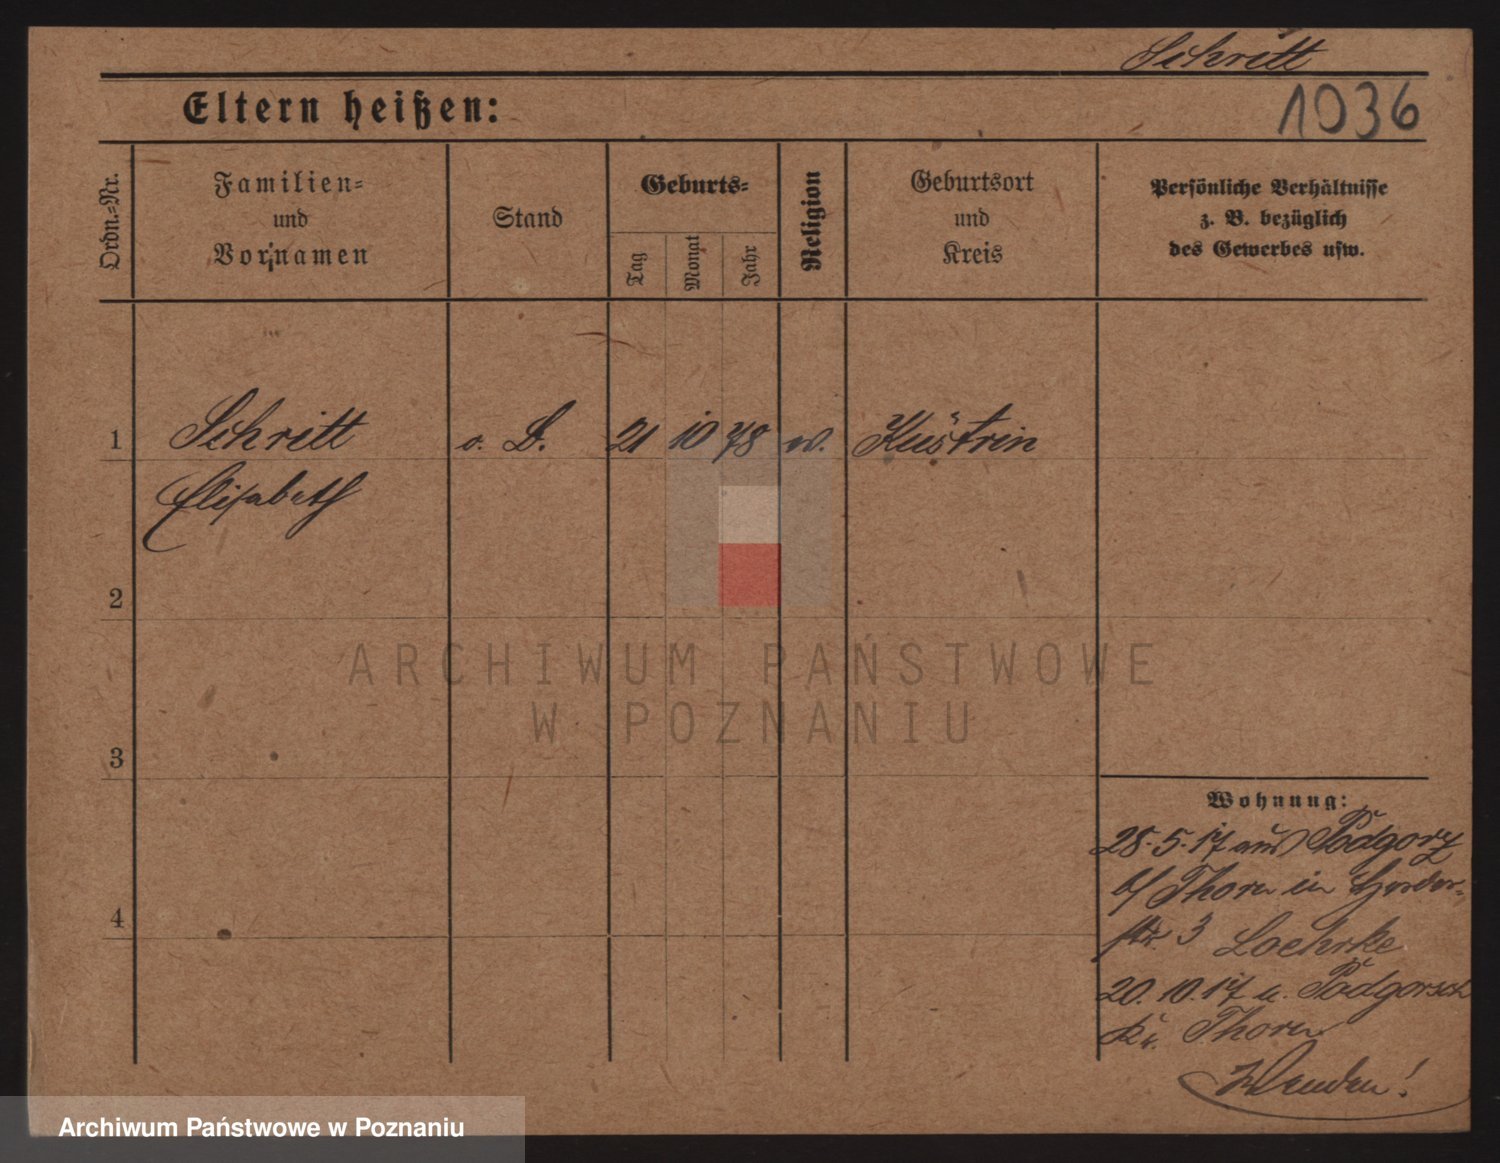 Schritt
Eltern heißen:
1036
Ordn.-Nr.
Familien-
und
Vornamen
Stand
Geburts-
Tag
Monat
Jahr
Religion
Geburtsort
und
Kreis
Persönliche Verhältnisse
z. B. bezüglich
des Gewerbes usw.
1 Schritt o. D. 21 10 78 w. Küstrin
Elisabeth
2
3
4
Wohnung:
28.5.17 aus Podgorz
b/ Thorn in Herder-
str. 3 Loehrke
20.10.17 n. Podgorsch
Kr. Thorn
Wenden!
ARCHIWUM PAŃSTWOWE
W POZNANIU
Archiwum Państwowe w Poznaniu